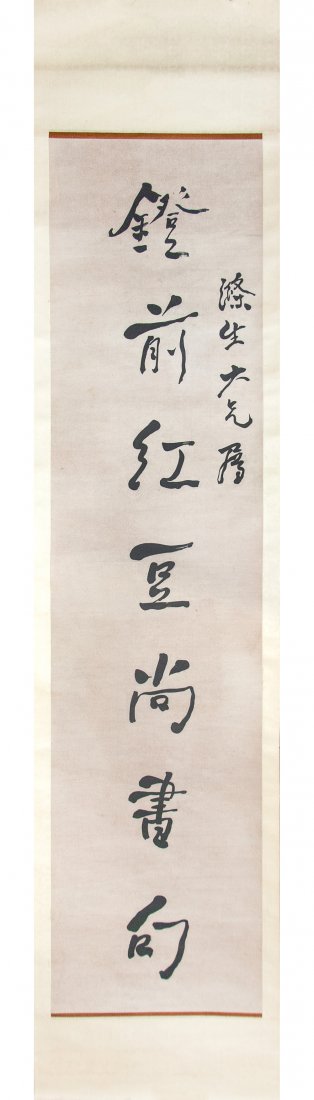 滌生大兄屬
鐙前紅豆尚書句